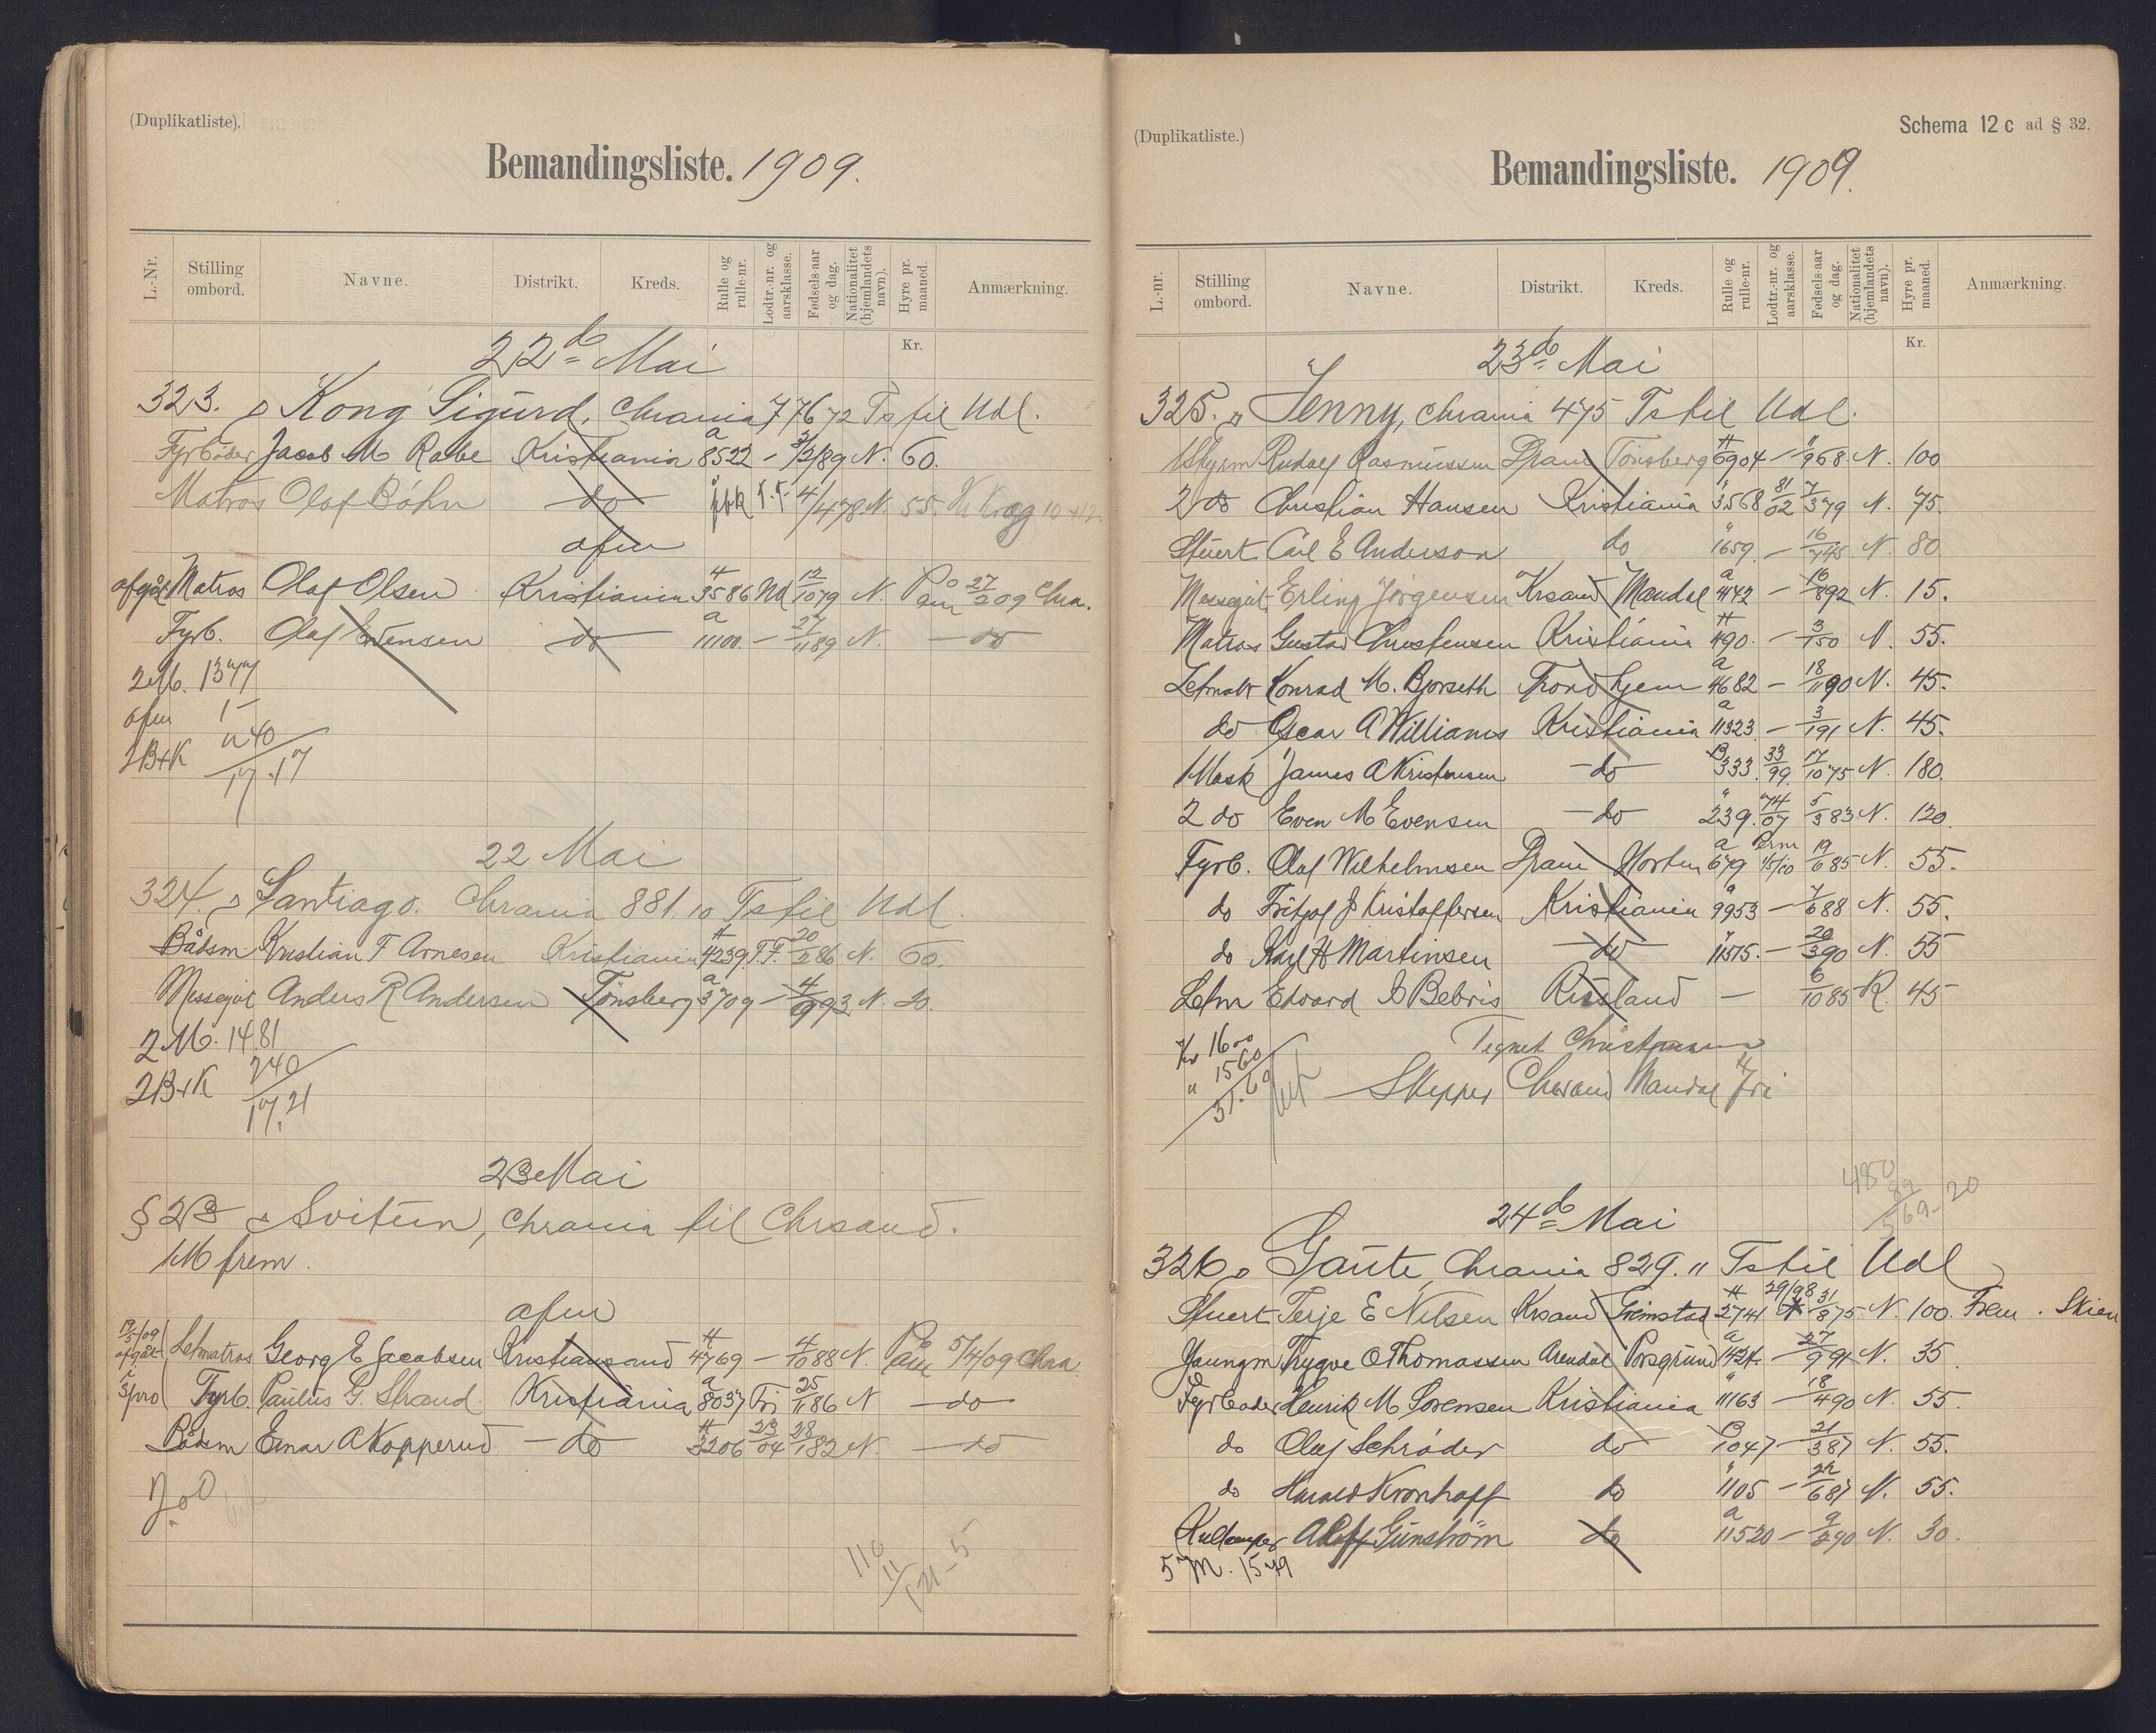 (Duplikatliste).
Bemandingsliste. 1909.
L.-Nr. Stilling ombord. Navne. Distrikt. Kreds. Rulle og rulle-nr. Lodtr.-nr. og aarsklasse. Fødsels-aar og dag. Nationalitet (hjemlandets navn). Hyre pr. maaned. Anmærkning.
Kr.
22de Mai
323. Kong Sigurd, Chrania 776 72 Ts til Udl.
Fyrbøder Jacob M Rabe Kristiania a 8522 - 3/2/89 N. 60.
Matros Olaf Bøhn do 4/4 78 N. 55.
afm
afgåt Matros Olaf Olsen Kristiania H 3586 Ud 12/10 79 N. På am 27/2 09 Chra.
Fyrb. Olaf Evensen do a 11100. - 27/11 89 N. do
2 M. 13 77
afm 1-
2B+K 2 40
17.17
22 Mai
324. Santiago. Chrania 881.10 Ts til Udl.
Båtsm Kristian F Arnesen Kristiania H 4239 T.F. 20/2 86 N. 60.
Messegut Anders R Andersen Tönsberg a 3709 - 4/9 93 N. 20.
2 M. 14.81
2B+K 240
17.21
23 Mai
§ 23 Svitun, Chrania til Chrsand.
1 M frem.
afm
19/5 09 afgåt Letmatros Georg E Jacobsen Kristiansand H 4769 - 4/10 88 N. På am 5/4/09 Chra
Fyrb. Paulus G. Strand. Kristiania a 8037 Fri 25/11 86 N do
Båtsm Einar A Kopperud do H 3206 23/04 28/1 82 N. do
(Duplikatliste.)
Schema 12 c ad § 32.
Bemandingsliste. 1909.
L.-nr. Stilling ombord. Navne. Distrikt. Kreds. Rulle og rulle-nr. Lodtr.-nr. og aarsklasse. Fødsels-aar og dag. Nationalitet (hjemlandets navn). Hyre pr. maaned. Anmærkning.
Kr.
23de Mai
325. Jenny, Chrania 475 Ts til Udl.
1 Styrm Rudolf Rasmussen Dram Tönsberg H 6904 - 9 68 N. 100
2 do Christian Hansen Kristiania " 3568 81/02 7/3 79 N. 75.
Stuert Carl E Anderson do " 1659. - 16/7 45 N. 80
Messegut Erling Jörgensen Krsand Mandal a 4142 - 16/8 92 N. 15.
Matros Gustav Christensen Kristiania H 490. - 3/1 50 N. 55.
Letmatr Konrad M. Bjorseth Trondhjem a 4682 - 18/11 90 N. 45.
do Oscar A Williams Kristiania a 11323 - 3/1 91 N. 45.
1 Mask James A Kristensen do B 333. 33/99. 17/10 75 N. 180.
2 do Even M Evensen do " 239. 74/07 5/3 83 N. 120.
Fyrb. Olaf Wilhelmsen Dram Horten a 679 19/6 85 N. 55.
do Fritjof J Kristoffersen Kristiania a 9953 - 7/6 88 N. 55.
do Karl H Martinsen do " 11575. - 20/3 90 N. 55
Letm Edvard I Bebris Rusland - 6/10 85 R. 45
Kr 16 00
" 15 60
31.60
Tegnet
Skipper Chrsand Mandal H Fri
24de Mai
326 Gaute, Chrania 829. " Ts til Udl
Stuert Terje E Nilsen Krsand Grimstad H 2741 29/98 31/8 75 N. 100. Frem. Skien
Youngm Trygve O Thomassen Arendal Porsgrund a 1424. - 27/9 91 N. 35.
Fyrbøder Henrik M Sorensen Kristiania " 11163 - 18/4 90 N. 55.
do Olaf Schrøder do B 1047 - 21/3 87 N. 55.
do Harald Kronhoff do " 1105 - 22/6 87 N. 55.
Kullemper Alf Gunström do a 11520 - 9/2 90 N. 30.
5 M. 15 79